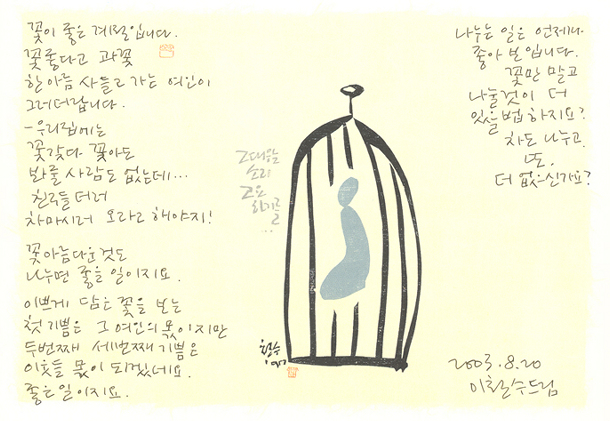 꽃이 좋은 계절입니다.
꽃좋다고 과꽃
한아름 사들고 가는 여인이
그러더랍니다.
-우리집에는
꽃갖다 꽂아도
봐줄 사람도 없는데...
친구들더러
차마시러 오라고 해야지!
꽃아름다운것도
나누면 좋을 일이지요.
이쁘게 담은 꽃을 보는
첫기쁨은 그 여인의 몫이지만
두번째 세번째 기쁨은
이웃들 몫이 되겠네요.
좋은일이지요.
그대 마음
소리
고요
하기를
...
철수
'97
나누는 일은 언제나
좋아 보입니다.
꽃만 말고
나눌것이 더
있을 법 하지요?
차도 나누고.
또.
더 없으신가요?
2003.8.20
이철수드림